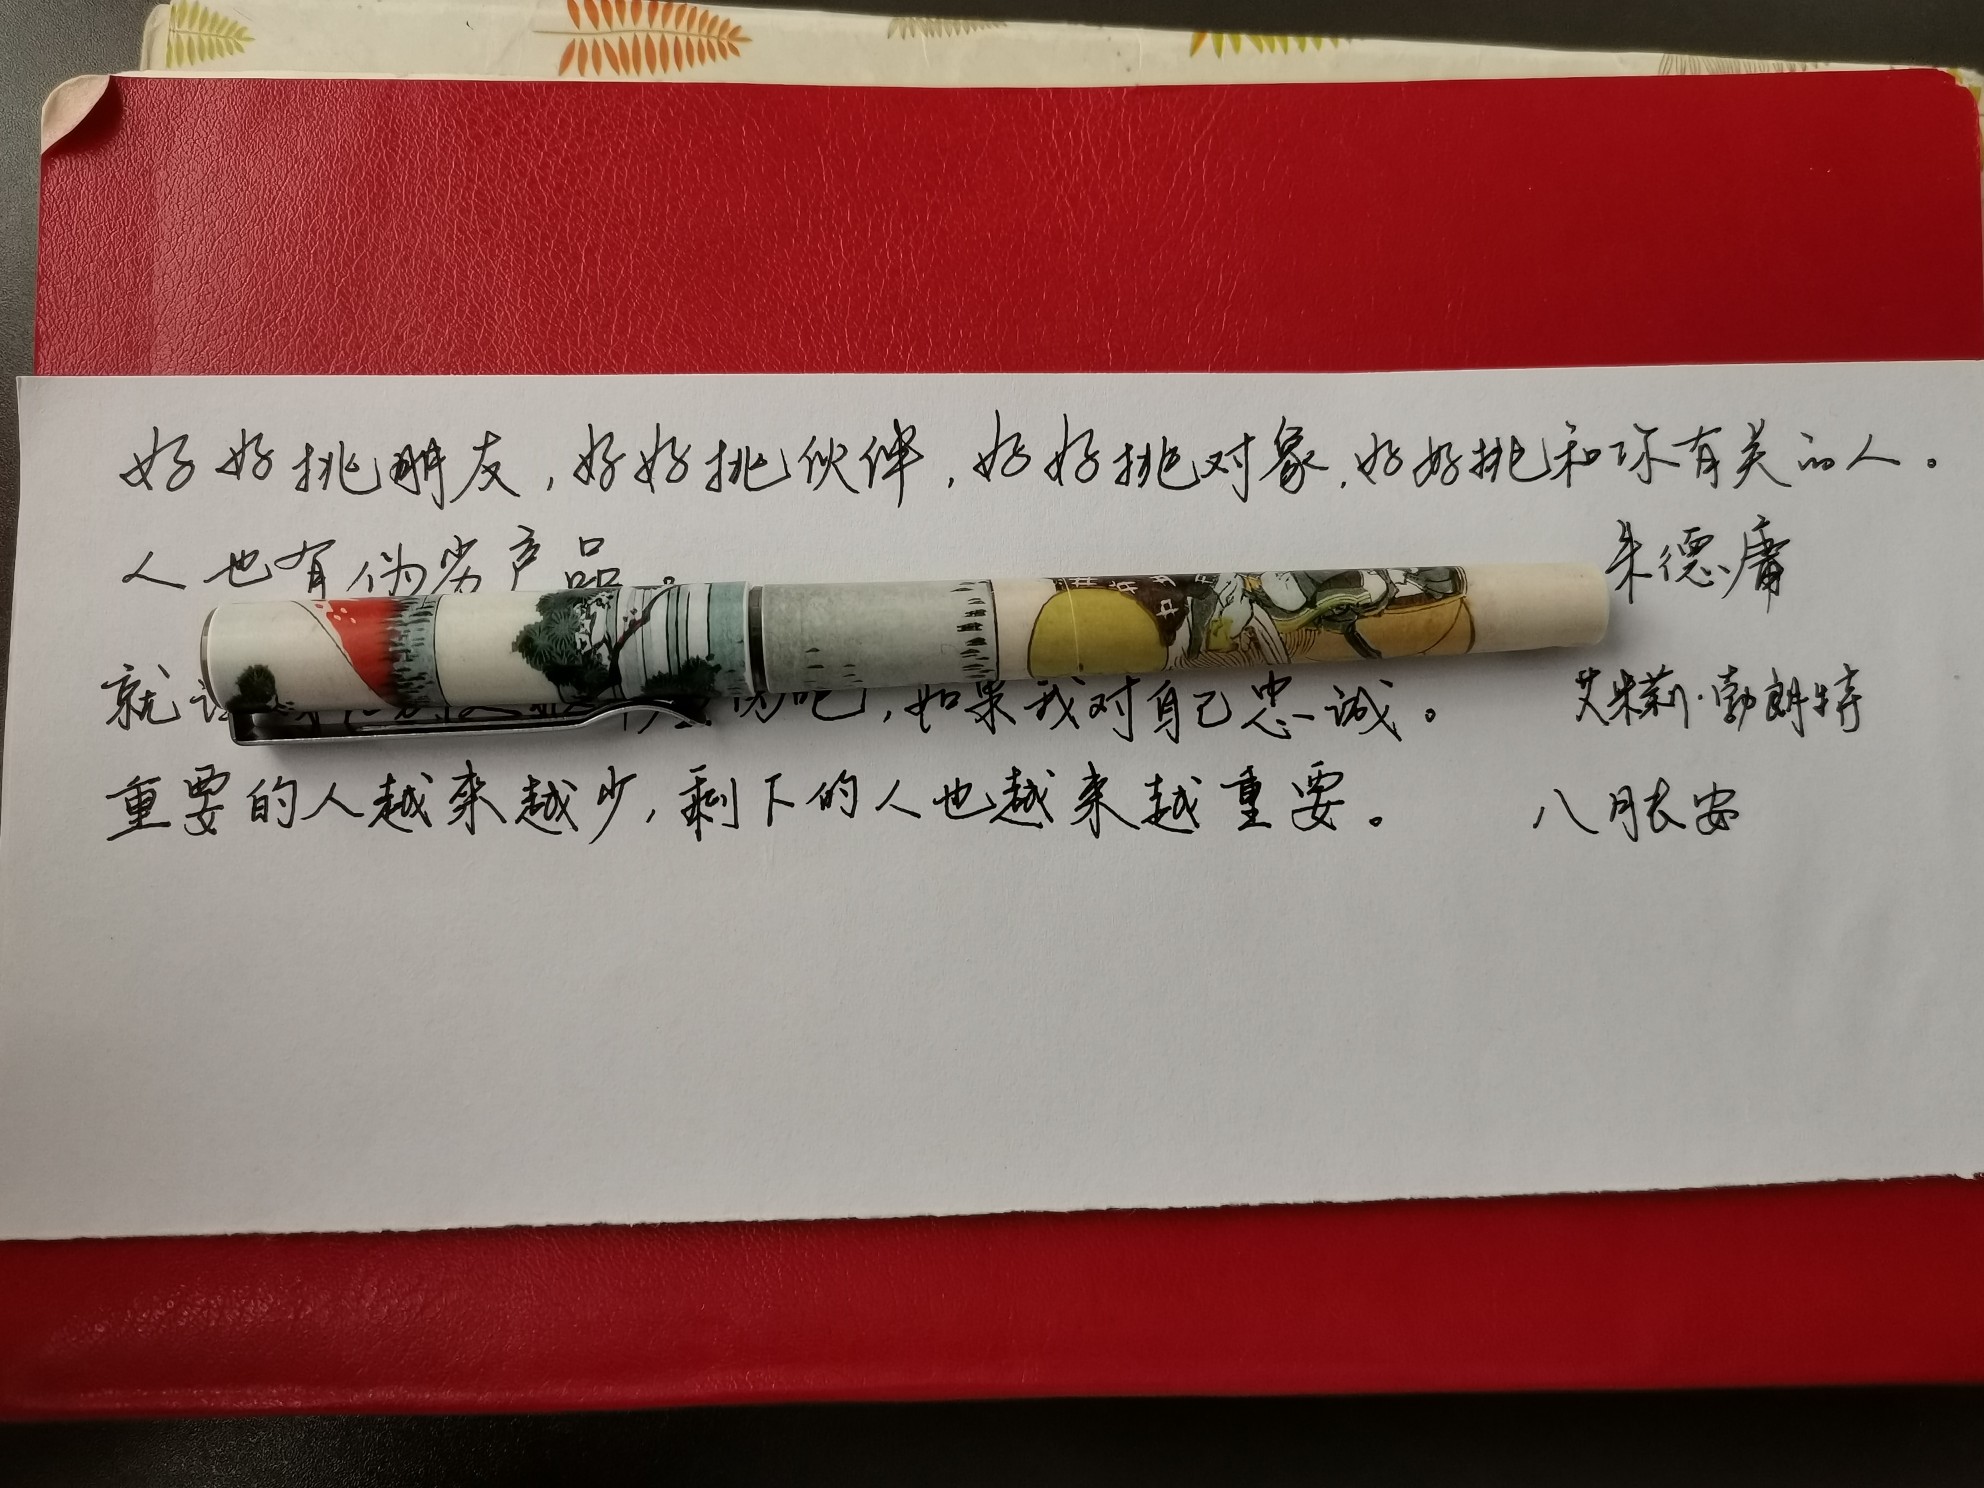 好好挑朋友,好好挑伙伴,好好挑对象,好好挑和你有关的人。
人也有伪劣产品。 朱德庸
就 吧,如果我对自己忠诚。 艾米莉·勃朗特
重要的人越来越少,剩下的人也越来越重要。 八月长安